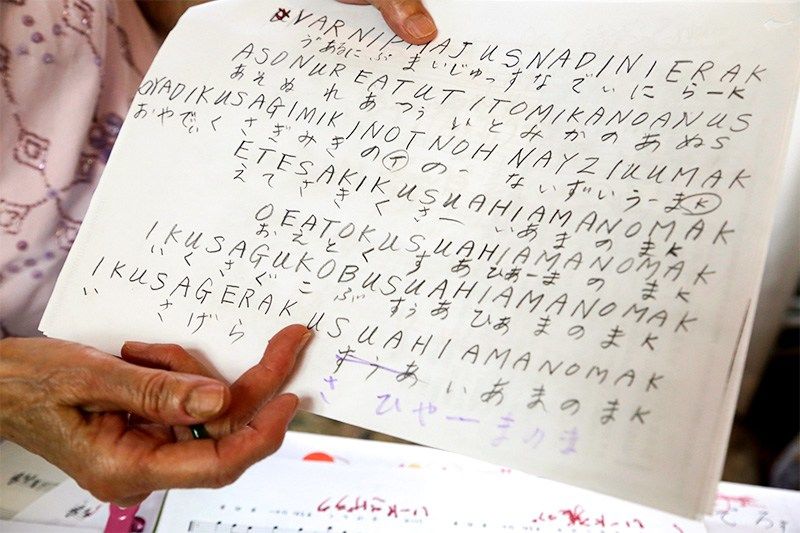 VARNIPMAJUSNADINIERAK
うあるにぷまいじゅっすなでぃにらーK
ASONUREATUTITOMIKANOANUS
あそぬれあつういとみかのあぬS
OYADIKUSAGIMIKINOTNOHNAYZIUUMAK
おやでぃくさぎみきのTのーないずいうーまK
ETESAKIKUSUAHIAMANOMAK
えてさきくさーいあまのまK
OEATOKUSUAHIAMANOMAK
おえとくすあひあーまのまK
IKUSAGUKOBUSUAHIAMANOMAK
いくさぐこぶすうあひあまのまK
IKUSAGERAKUSUAHIAMANOMAK
いさげらすうあいあまのまK
さひやーまのま